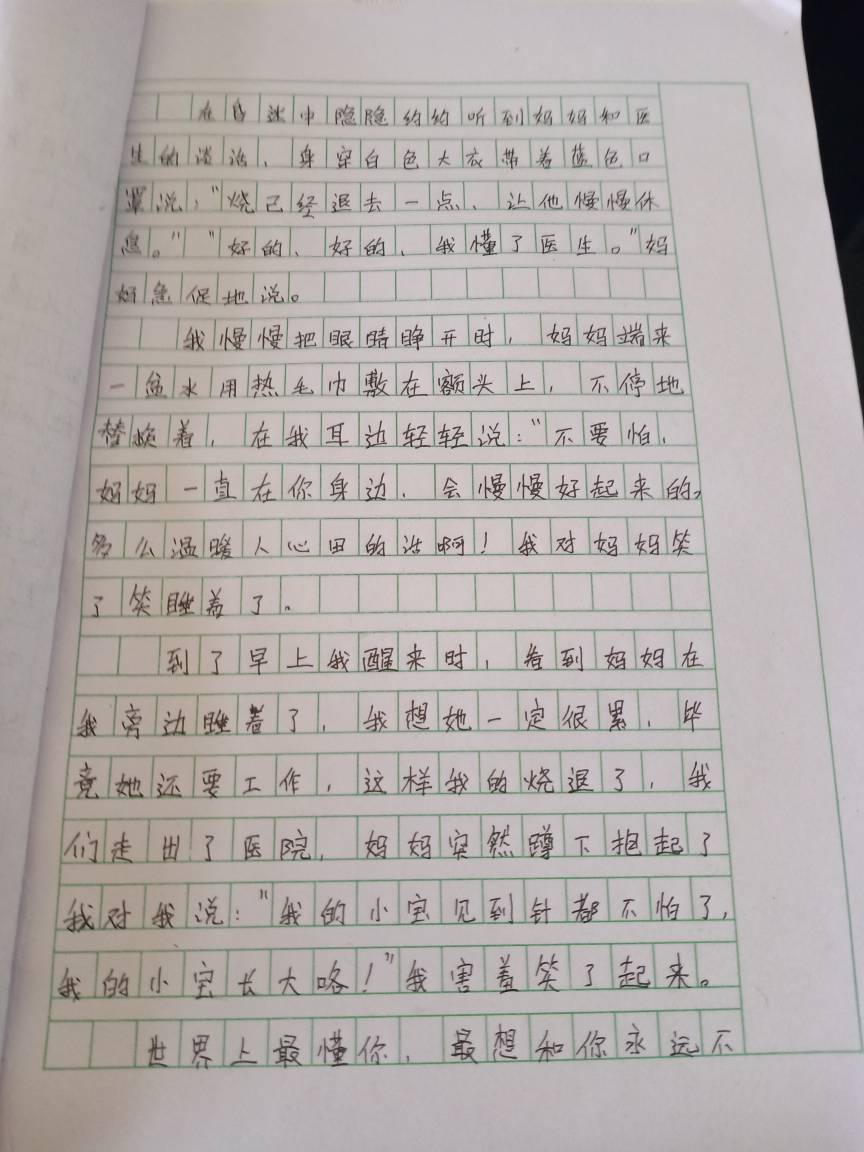 在昏迷中隐隐约约听到妈妈和医
生的谈话、身穿白色大衣带着蓝色口
罩说："烧已经退去一点、让他慢慢休
息。""好的、好的、我懂了医生。"妈
妈急促地说。
我慢慢把眼睛睁开时，妈妈端来
一盆水用热毛巾敷在额头上，不停地
替换着，在我耳边轻轻说："不要怕、
妈妈一直在你身边、会慢慢好起来的，
多么温暖人心田的话啊！我对妈妈笑
了笑睡着了。
到了早上我醒来时，看到妈妈在
我旁边睡着了，我想她一定很累，毕
竟她还要工作，这样我的烧退了，我
们走出了医院，妈妈突然蹲下抱起了
我对我说："我的小宝见到针都不怕了，
我的小宝长大咯！"我害羞笑了起来。
世界上最懂你、最想和你永远不